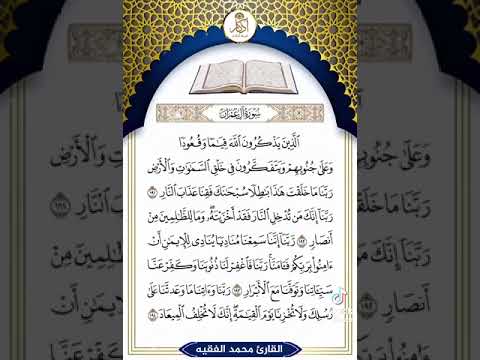 سُورَةُ آلِ عِمْرَان
الَّذِينَ يَذْكُرُونَ اللَّهَ قِيَامًا وَقُعُودًا
وَعَلَىٰ جُنُوبِهِمْ وَيَتَفَكَّرُونَ فِي خَلْقِ السَّمَاوَاتِ وَالْأَرْضِ
رَبَّنَا مَا خَلَقْتَ هَٰذَا بَاطِلًا سُبْحَانَكَ فَقِنَا عَذَابَ النَّارِ ١٩١
رَبَّنَا إِنَّكَ مَن تُدْخِلِ النَّارَ فَقَدْ أَخْزَيْتَهُ ۖ وَمَا لِلظَّالِمِينَ مِنْ
أَنصَارٍ ١٩٢ رَّبَّنَا إِنَّنَا سَمِعْنَا مُنَادِيًا يُنَادِي لِلْإِيمَانِ أَنْ
آمِنُوا بِرَبِّكُمْ فَآمَنَّا ۚ رَبَّنَا فَاغْفِرْ لَنَا ذُنُوبَنَا وَكَفِّرْ عَنَّا
سَيِّئَاتِنَا وَتَوَفَّنَا مَعَ الْأَبْرَارِ ١٩٣ رَبَّنَا وَآتِنَا مَا وَعَدتَّنَا عَلَىٰ
رُسُلِكَ وَلَا تُخْزِنَا يَوْمَ الْقِيَامَةِ ۗ إِنَّكَ لَا تُخْلِفُ الْمِيعَادَ ١٩٤
القارئ محمد الفقيه